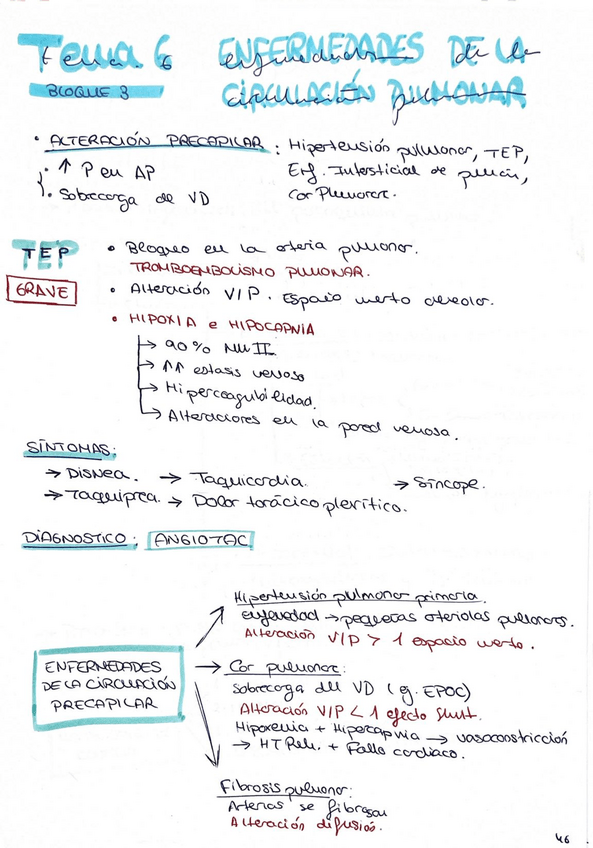 Tema 6 ENFERMEDADES DE LA
BLOQUE 3 CIRCULACIÓN PULMONAR
• ALTERACIÓN PRECAPILAR : Hipertensión pulmonar, TEP,
• ↑ P en AP Enf. Intersticial de pulmón,
• Sobrecarga de VD Cor Pulmonar.
TEP • Bloqueo en la arteria pulmonar.
TROMBOEMBOLISMO PULMONAR.
GRAVE • Alteración V/P. Espacio muerto alveolar.
• HIPOXIA e HIPOCAPNIA
→ 90% MMII
→ ↑↑ estasis venoso
→ Hipercoagubilidad.
→ Alteraciones en la pared venosa.
SÍNTOMAS:
→ Disnea. → Taquicardia. → Síncope.
→ Taquipnea. → Dolor torácico pleurítico.
DIAGNOSTICO: ANGIOTAC
Hipertensión pulmonar primaria.
enfermedad → pequeñas arteriolas pulmonares.
Alteración V/P > 1 espacio muerto.
ENFERMEDADES
DE LA CIRCULACIÓN
PRECAPILAR
→ Cor pulmonar:
Sobrecarga del VD (ej. EPOC)
Alteración V/P < 1 efecto Shut.
Hipoxemia + Hipercapnia → vasoconstricción
→ HT Pulm. + Fallo cardiaco.
Fibrosis pulmonar:
Arterias se fibrosan
Alteración difusión.
46